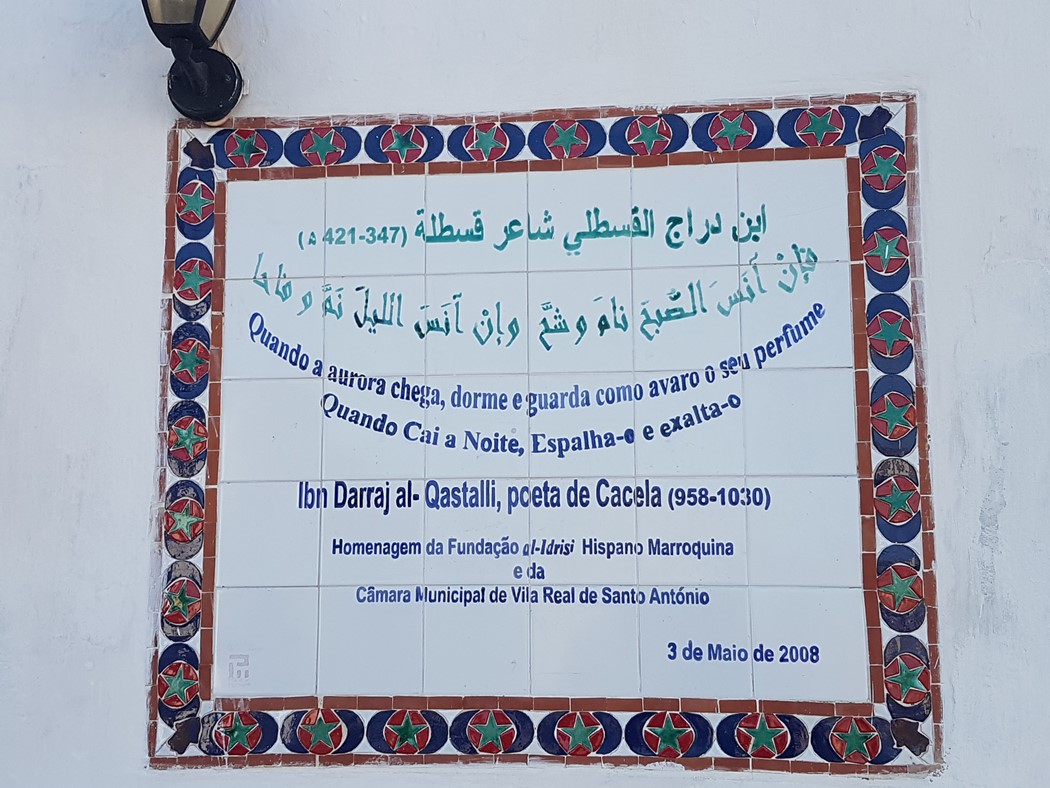 ابن دراج القسطلي شاعر قسطلة (347-421 ه)
فإنْ آنَسَ الصُّبحَ نامَ وشحَّ وإنْ آنَسَ الليلَ نَمَّ وفاحا
Quando a aurora chega, dorme e guarda como avaro o seu perfume
Quando Cai a Noite, Espalha-o e exalta-o
Ibn Darraj al- Qastalli, poeta de Cacela (958-1030)
Homenagem da Fundação al-Idrisi Hispano Marroquina
e da
Câmara Municipal de Vila Real de Santo António
3 de Maio de 2008